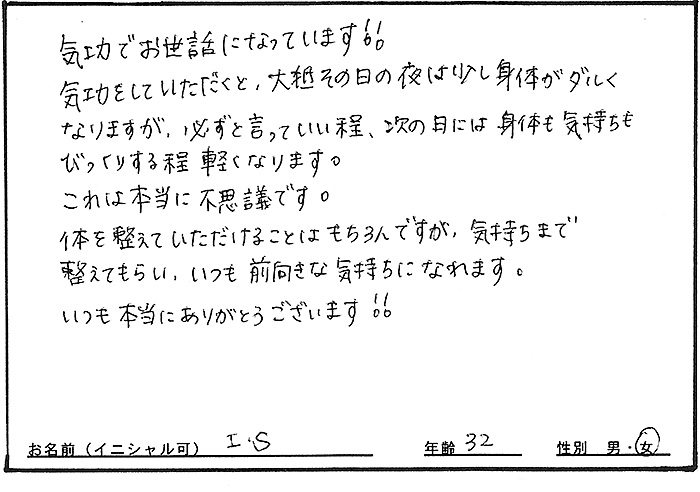 気功でお世話になっています!!
気功をしていただくと、大抵その日の夜は少し身体がダルく
なりますが、必ずと言っていい程、次の日には身体も気持ちも
びっくりする程軽くなります。
これは本当に不思議です。
体を整えていただけることはもちろんですが、気持ちまで
整えてもらい、いつも前向きな気持ちになれます。
いつも本当にありがとうございます!!
お名前(イニシャル可) I・S 年齢 32 性別 男・女